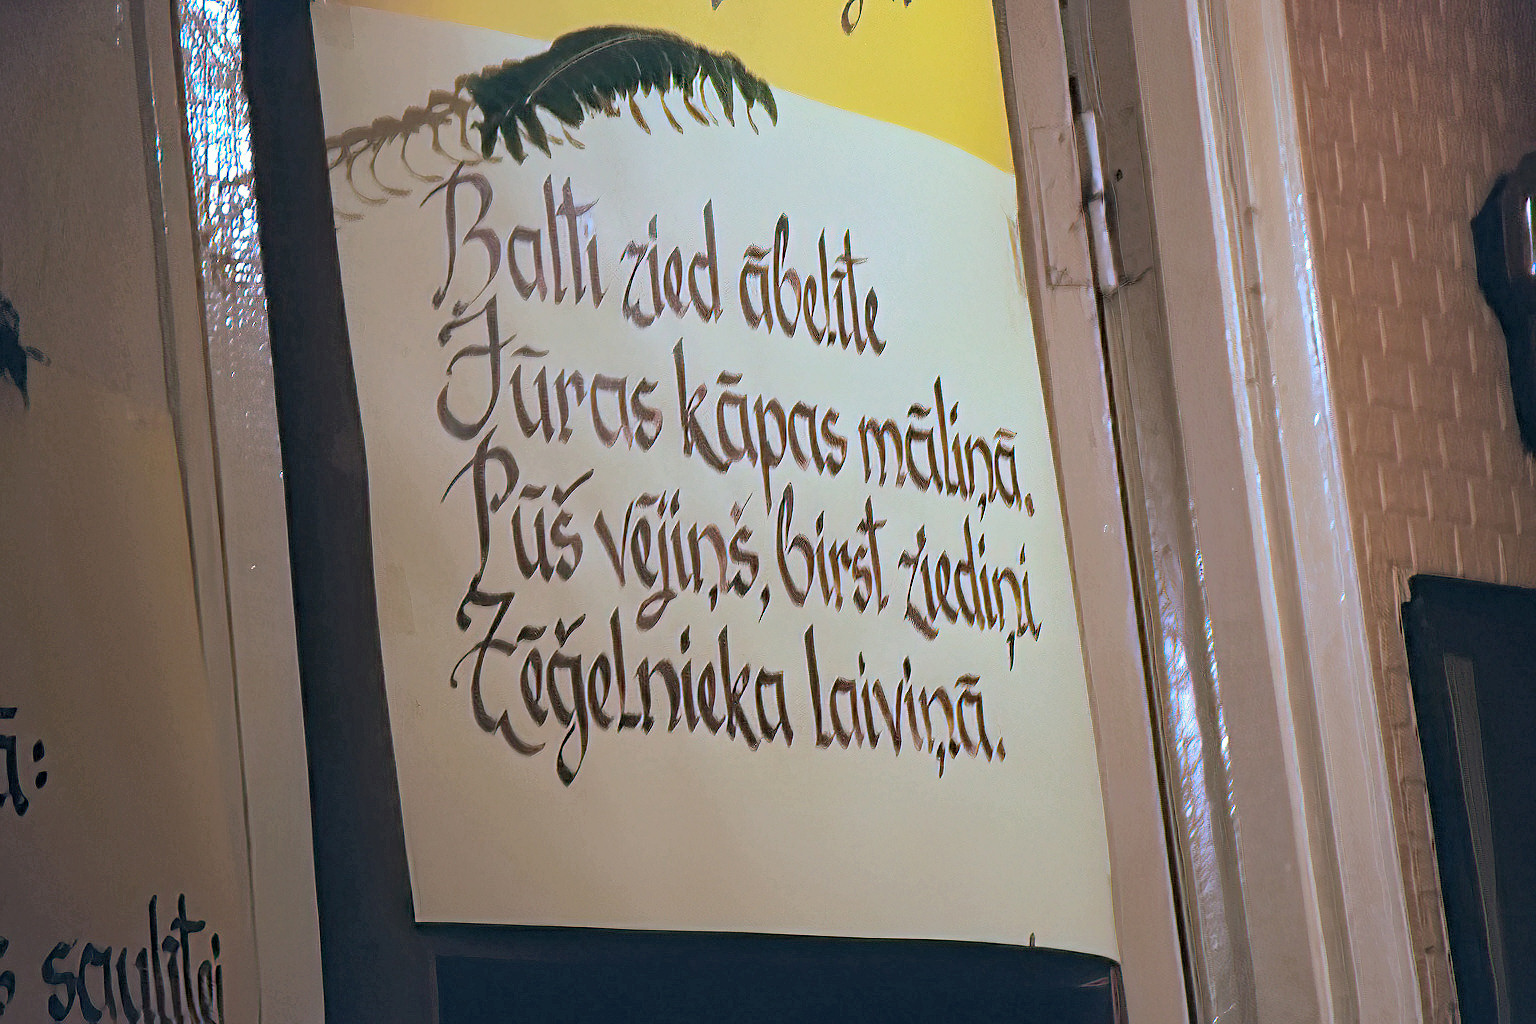 Balti zied ābelīte
Jūras kāpas māliņā.
Pūš vējiņš, birst ziediņi
Zēģelnieka laiviņā.
ā:
saulītei